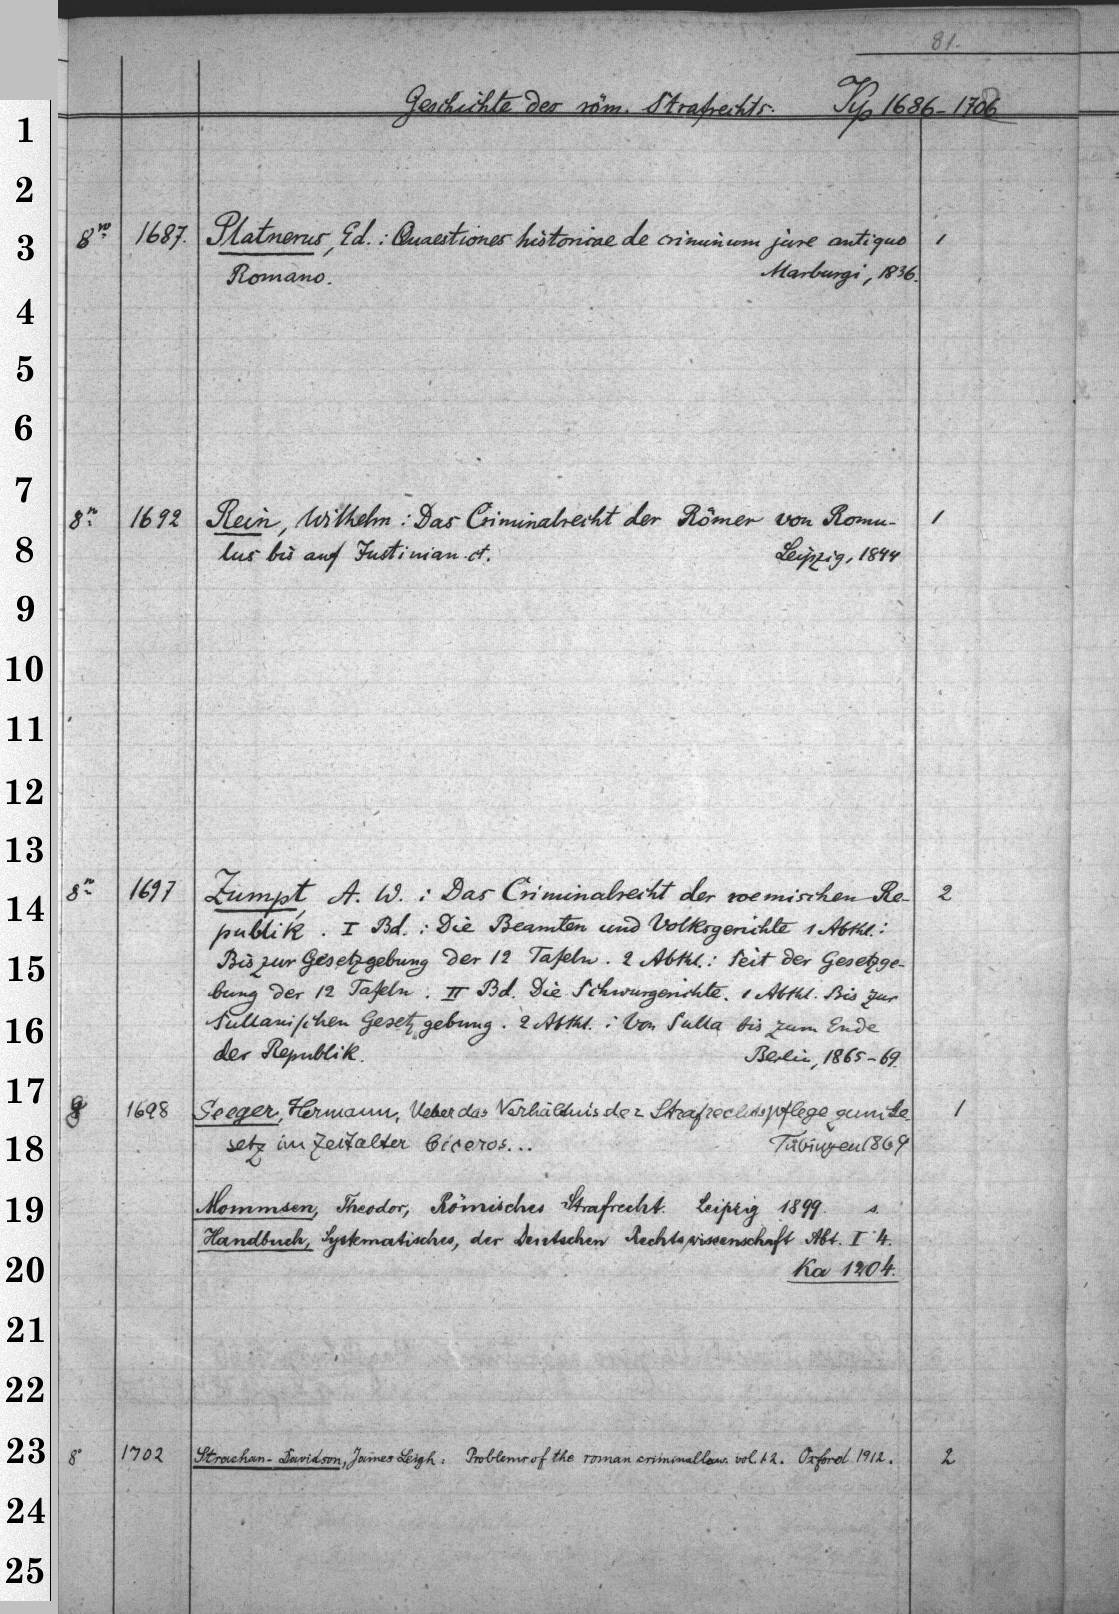 81.
Geschichte des röm. Strafrechts. Kp 1686-1706
1
2
3
8vo. 1687. Platnerus, Ed.: Quaestiones historicae de criminum jure antiquo 1
Romano. Marburgi, 1836.
4
5
6
7
8
8o. 1692 Rein, Wilhelm: Das Criminalrecht der Römer von Romu- 1
lus bis auf Justinian. Leipzig, 1844
9
10
11
12
13
14
8o. 1697 Zumpt, A. W.: Das Criminalrecht der roemischen Re- 2
publik. I Bd.: Die Beamten und Volksgerichte 1 Abthl.:
15
Bis zur Gesetzgebung der 12 Tafeln. 2 Abthl.: Seit der Gesetzge-
bung der 12 Tafeln. II Bd. Die Schwurgerichte. 1 Abthl. Bis zur
16
Sullanischen Gesetzgebung. 2 Abthl.: Von Sulla bis zum Ende
der Republik. Berlin, 1865-69.
17
8 1698 Seeger, Hermann, Ueber das Verhältnis der Strafrechtspflege zum Ge- 1
18
setz im Zeitalter Ciceros... Tübingen 1869
19
Mommsen, Theodor, Römisches Strafrecht. Leipzig 1899 s.
Handbuch, Systematisches, der Deutschen Rechtswissenschaft Abt. I 4.
20
Ka 1204.
21
22
23
8° 1702 Strachan-Davidson, James Leigh: Problems of the roman criminal law. vol. 1.2. Oxford 1912. 2
24
25